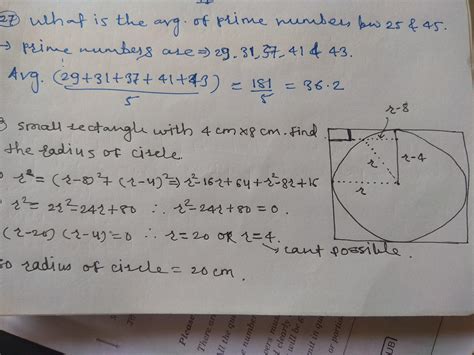 27) What is the avg. of prime numbers b/w 25 & 45.
→ prime numbers are ⇒ 29, 31, 37, 41 & 43.
Avg. (29+31+37+41+43) / 5 = 181 / 5 = 36.2
small rectangle with 4cm x 8cm. find
the radius of circle
r² = (r-8)² + (r-4)² ⇒ r²-16r+64+r²-8r+16
r² = 2r²-24r+80 ∴ r²-24r+80=0.
(r-20)(r-4)=0 ∴ r=20 or r=4.
→ cant possible.
so radius of circle = 20cm.
r-8
r
r-4
r
Please
There are
All the qu